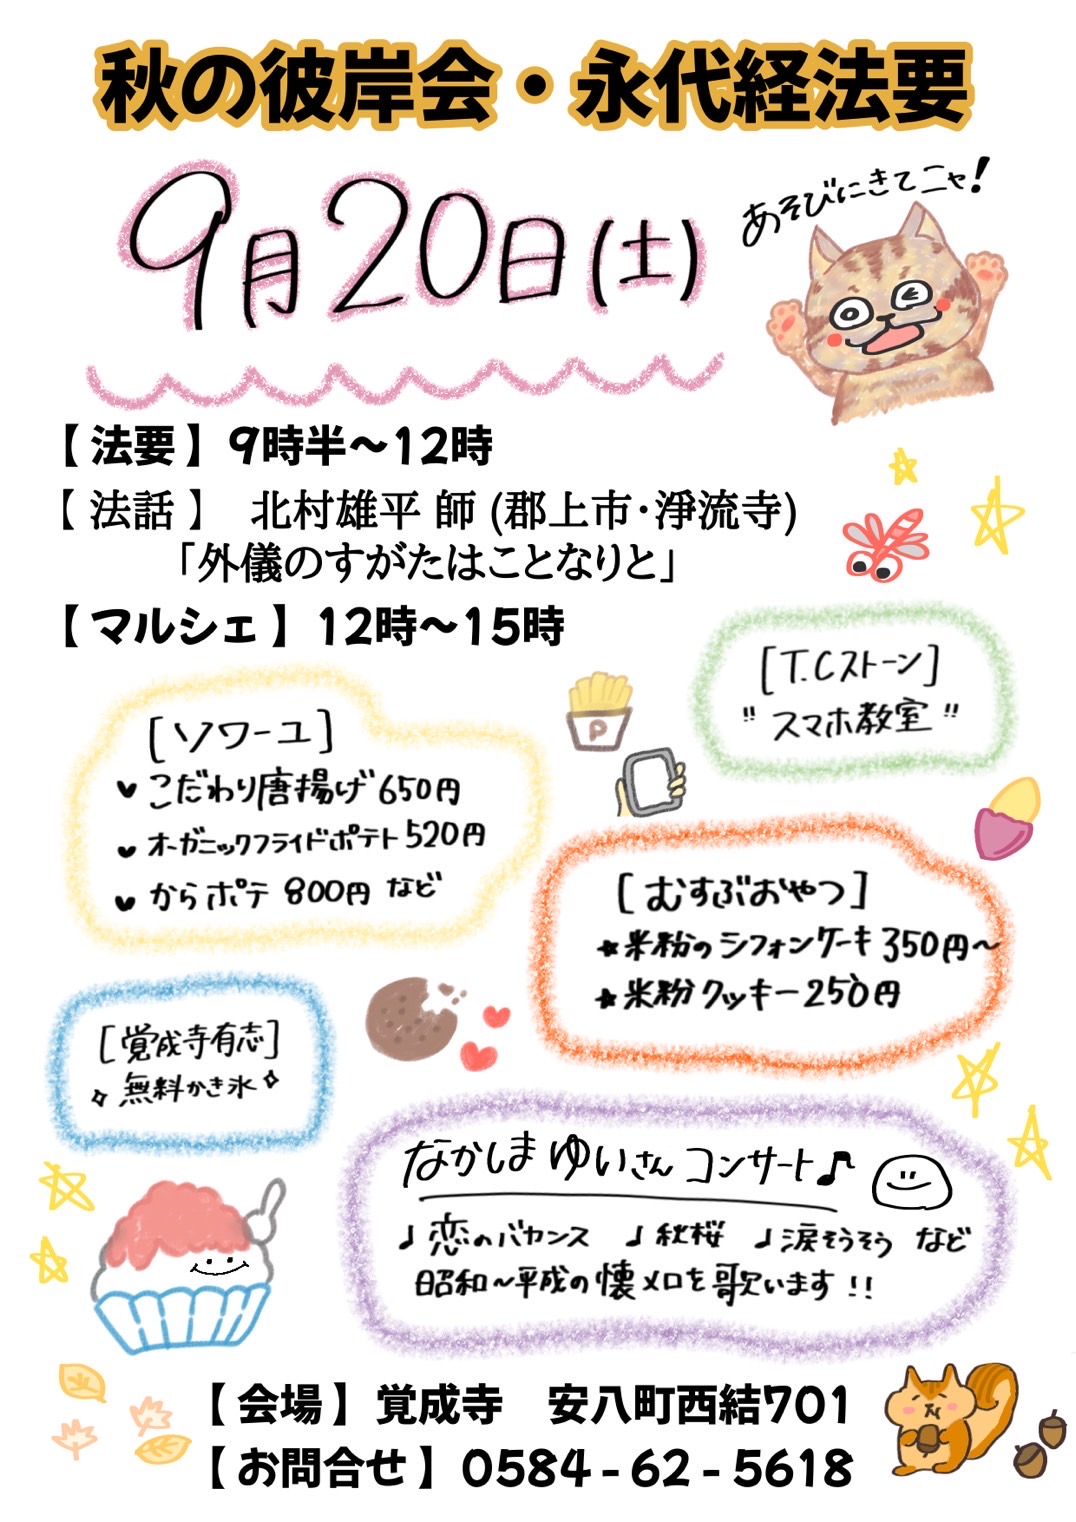 秋の彼岸会・永代経法要
9月20日(土)
あそびにきてニャ!
【法要】9時半〜12時
【法話】 北村雄平 師 (郡上市・淨流寺)
「外儀のすがたはことなりと」
【マルシェ】12時〜15時
[T.Cストーン]
"スマホ教室"
[ソワーユ]
♥こだわり唐揚げ 650円
♥オーガニックフライドポテト 520円
♥からポテ 800円 など
P
[むすぶおやつ]
★米粉のシフォンケーキ 350円〜
★米粉クッキー 250円
[覚成寺有志]
✧無料かき氷✧
なかしまゆいさん コンサート♪
♩恋のバカンス ♩秋桜 ♩涙そうそう など
昭和〜平成の懐メロを歌います!!
【会場】覚成寺 安八町西結701
【お問合せ】0584-62-5618